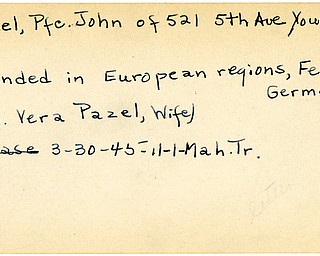 el, Pfc. John of 521 5th Ave You
nded in European regions, Fe
Germ
. Vera Pazel, Wife)
ase 3-30-45-11-1-Mah. Tr.